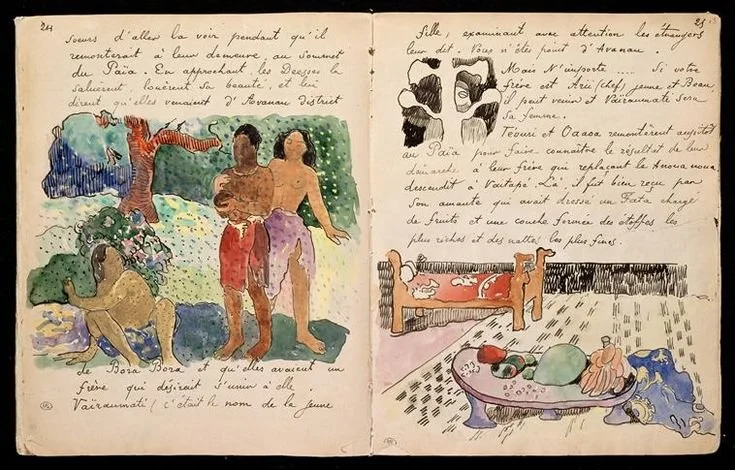 24
soeurs d'aller la voir pendant qu'il
remonterait à leur demeure, au sommet
du Païa. En approchant, les Déesses la
saluèrent, louèrent sa beauté, et lui
dirent qu'elles venaient d'Avanau district
de Bora Bora et qu'elles avaient un
frère qui désirait s'unir à elle.
Vaïraumati (c'était le nom de la jeune
25
fille, examinant avec attention les étrangers
leur dit. Vous n'êtes point d'Avanau.
Mais N'importe .... Si votre
frère est Arii (chef) jeune et Beau
il peut venir et Vaïraumati sera
Sa femme.
Téouri et Oaaoa remontèrent aussitôt
au Païa pour faire connaître le résultat de leur
démarche à leur frère qui replaçant le Anouanoua
descendit à Vaïtapé. Là, il fut bien reçu par
son amante qui avait dressé un Fata chargé
de fruits et une couche formée des étoffes les
plus riches et des nattes les plus fines.